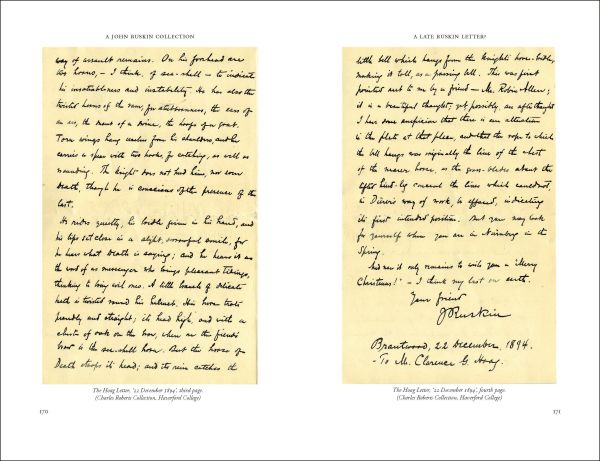 A JOHN RUSKIN COLLECTION
way of assault remains. On his forehead are
two horns, – I think, of sea-shell – to indicate
his insatiableness and instability. He has also the
twisted horns of the ram, for stubbornness, the ears of
an ass, the snout of a swine, the hoofs of a goat.
Torn wings hang useless from his shoulders, and he
carries a spear with two hooks, for catching, as well as
wounding. The knight does not heed him, nor even
Death, though he is conscious of the presence of the
last.
He rides quietly, his bridle firm in his hand, and
his lips set close in a slight, sorrowful smile, for
he hears what Death is saying; and he hears it as
the word of a messenger who brings pleasant tidings,
thinking to bring evil ones. A little branch of delicate
heath is twisted round his helmet. His horse trots
proudly and straight; its head high, and with a
cluster of oak on the brow, where on the fiend's
brow is the sea-shell horn. But the horse of
Death stoops its head; and its rein catches the
The Hoag Letter, '22 December 1894', third page.
(Charles Roberts Collection, Haverford College)
170
A LATE RUSKIN LETTER?
little bell which hangs from the knight's horse-bridle,
making it toll, as a passing bell. This was first
pointed out to me by a friend – Mr. Robin Allen;
it is a beautiful thought, yet possibly, an afterthought
I have some suspicion that there is an alteration
in the plate at that place, and that the rope to which
the bell hangs was originally the line of the chest
of the nearer horse, as the grass-blades about the
lifted hind-leg conceal the lines which
in Dürer's way of work, be effaced, indicating
its first intended position. But you may look
for yourself when you are in Nürnberg in the
Spring.
And now it only remains to wish you a 'Merry
Christmas!' – I think my last on earth.
Your friend
J Ruskin
Brantwood, 22 December, 1894.
- To M. Clarence G. Hoag.
The Hoag Letter, '22 December 1894', fourth page.
(Charles Roberts Collection, Haverford College)
171